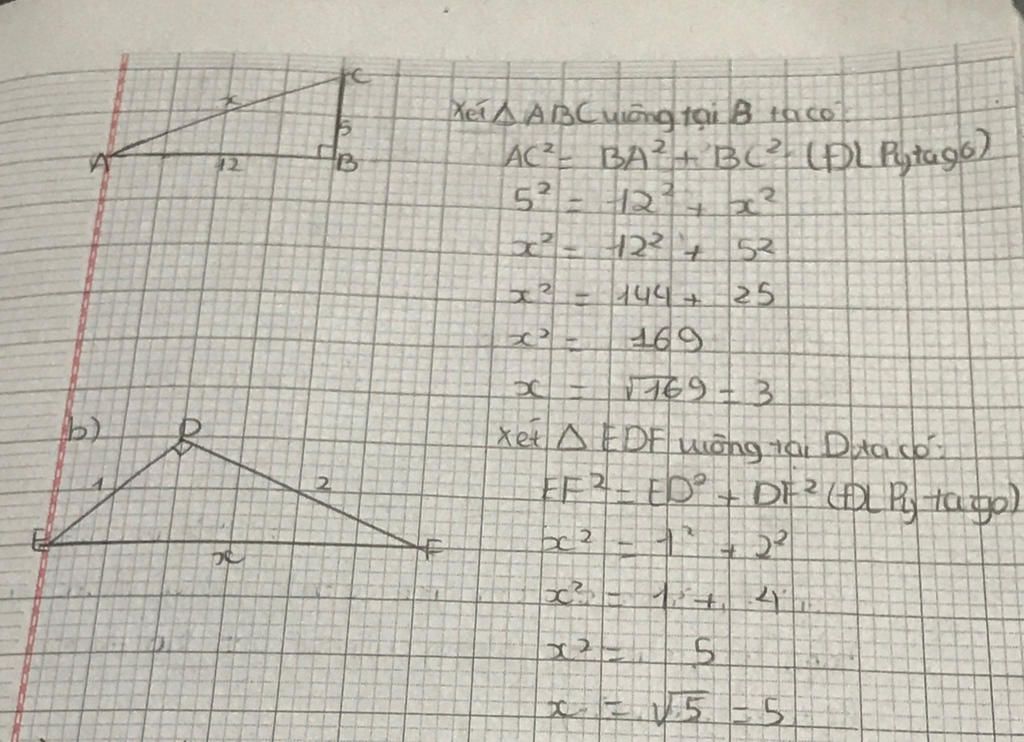 C
x
5
A
12
B
Xét △ ABC vuông tại B ta có:
AC² = BA² + BC² (ĐL Pytago)
5² = 12² + x²
x² = 12² + 5²
x² = 144 + 25
x² = 169
x = √169 = 3
b)
D
1
2
E
x
F
Xét △ EDF vuông tại D ta có:
EF² = ED² + DF² (ĐL Pytago)
x² = 1² + 2²
x² = 1 + 4
x² = 5
x = √5 = 5